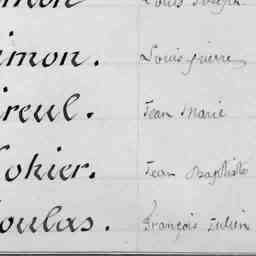 Louis Joseph
imon. Louis pierre
ireul. Jean Marie
okier. Jean Baptiste
oulas. François Julien